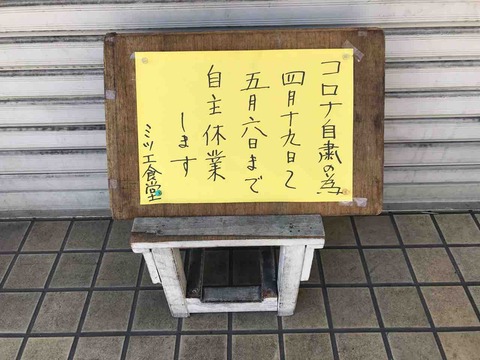 コロナ自粛の為
四月十九日〜
五月六日まで
自主休業
します
ミツエ食堂